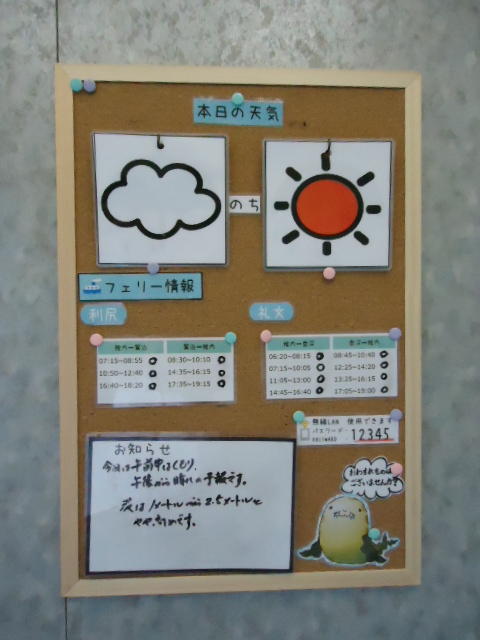 本日の天気
のち
フェリー情報
利尻
礼文
07:15~08:55 08:30~10:10
10:50~12:40 14:35~16:15
16:40~18:20 17:35~19:15
06:20~08:15 08:45~10:40
07:15~10:05 12:25~14:20
11:05~13:00 13:25~16:15
14:45~16:40 17:05~19:00
無線LAN 使用できます
パスワード 12345
お知らせ
今日は午前中はくもり、
午後から晴れの予報です。
波は1メートルから2.5メートルと
やや高めです。
おわすれものは
ございませんか?